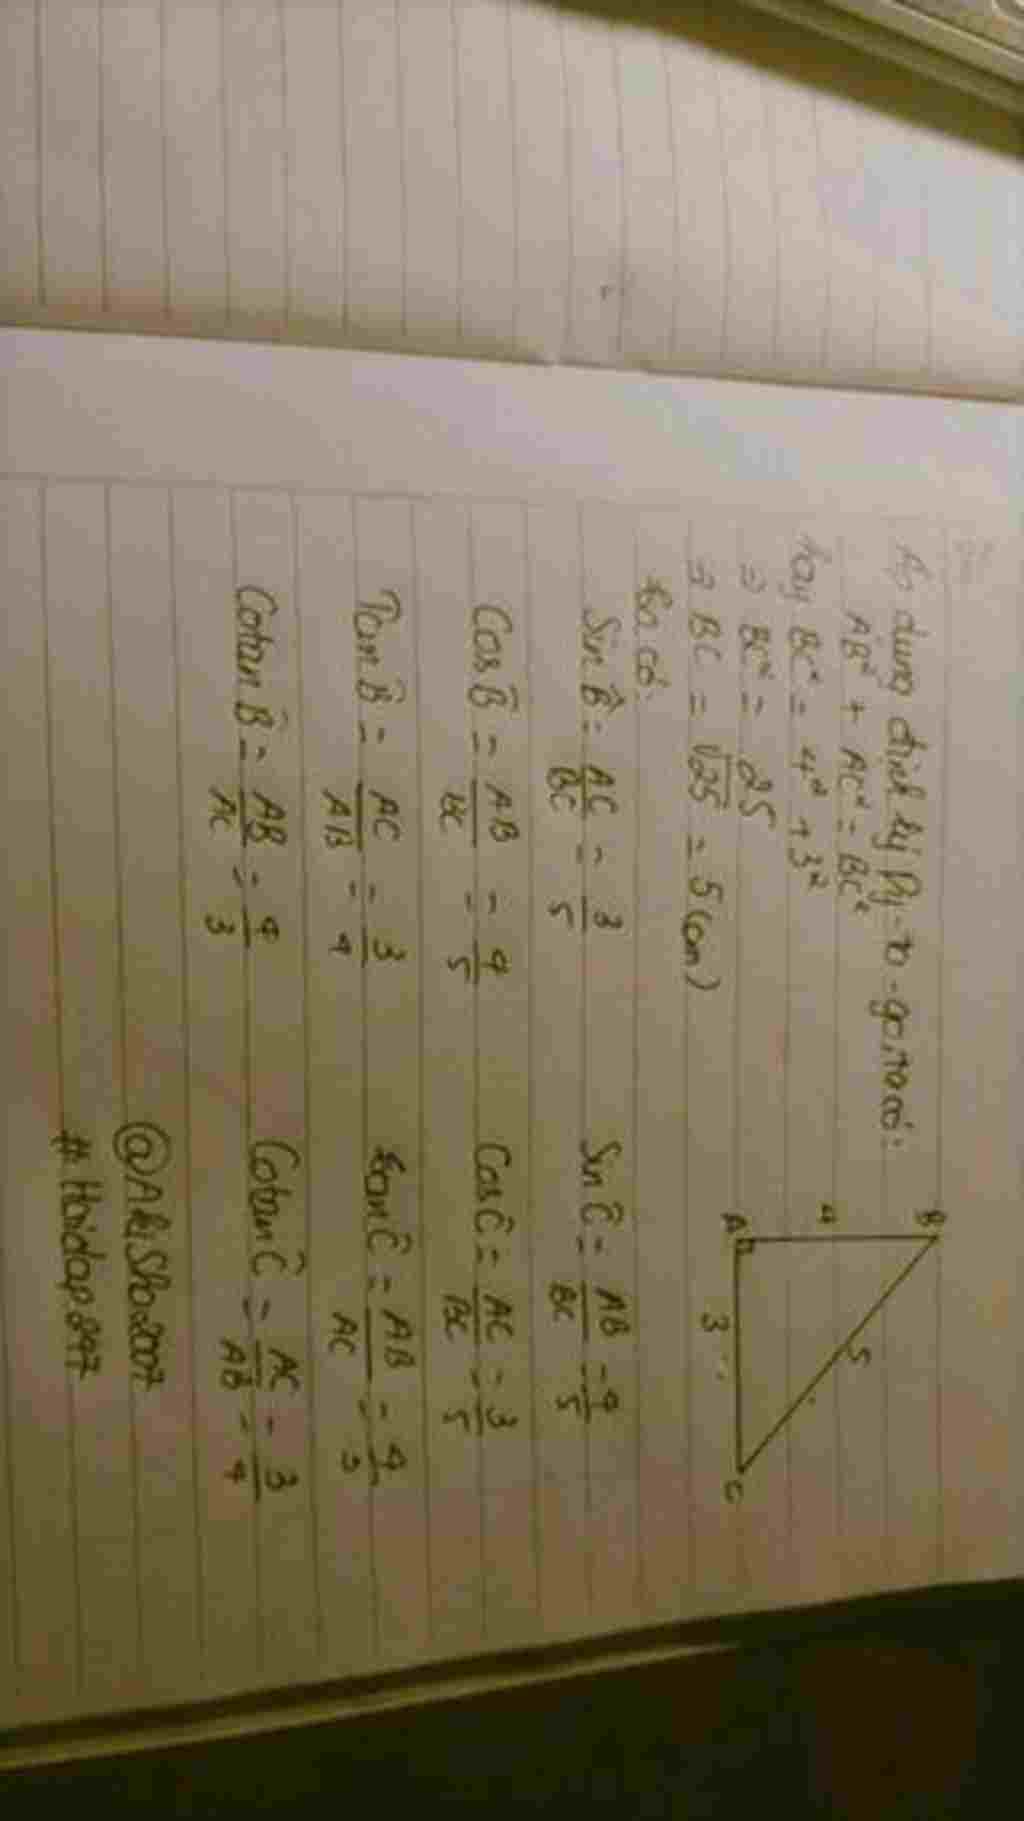 Áp dụng định lý Py-ta-go, ta có:
AB² + AC² = BC²
hay BC² = 4² + 3²
⇒ BC² = 25
⇒ BC = √25 = 5 (cm)
B
4
5
A
3
C
ta có
Sin B̂ = AC/BC = 3/5 Sin Ĉ = AB/BC = 4/5
Cos B̂ = AB/BC = 4/5 Cos Ĉ = AC/BC = 3/5
Tan B̂ = AC/AB = 3/4 tan Ĉ = AB/AC = 4/3
Cotan B̂ = AB/AC = 4/3 Cotan Ĉ = AC/AB = 3/4
@AkiSho2007
# Hoidap247